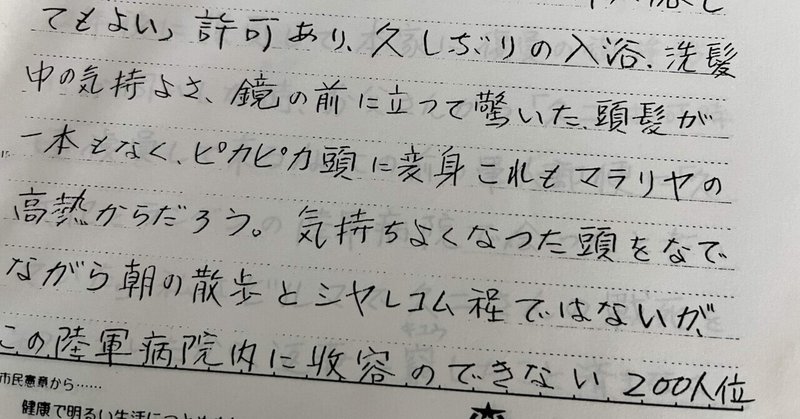 てもよい」許可あり、久しぶりの入浴、洗髪
中の気持よさ、鏡の前に立って驚いた、頭髪が
一本もなく、ピカピカ頭に変身これもマラリヤの
高熱からだろう。気持ちよくなった頭をなで
ながら朝の散歩とシヤレコム程ではないが、
この陸軍病院内に収容のできない200人位
市民憲章から……
健康で明るい生活につとめ